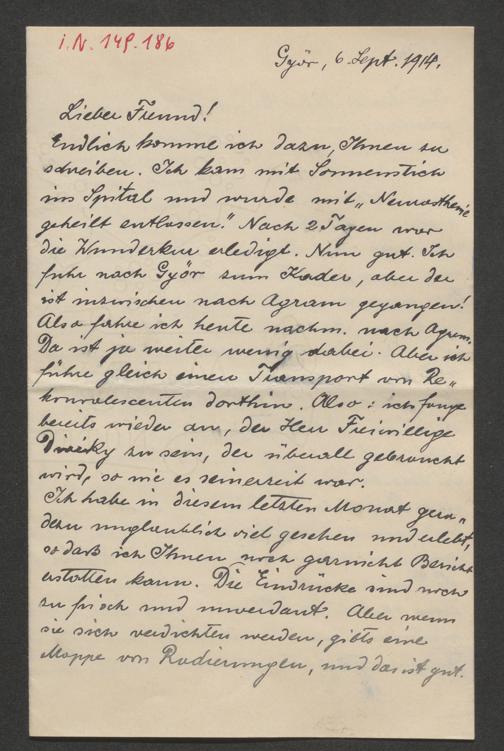 i.N. 149.186
Györ, 6 Sept. 1914.
Lieber Freund!
Endlich komme ich dazu, Ihnen zu
schreiben. Ich kam mit Sonnenstich
ins Spital und wurde mit „Neurasthenie
geheilt entlassen." Nach 2 Tagen war
die Wunderkur erledigt. Nun gut. Ich
fuhr nach Györ zum Kader, aber der
ist inzwischen nach Agram gegangen!
Also fahre ich heute nachm. nach Agram.
Da ist ja weiter wenig dabei. Aber ich
führe gleich einen Transport von Re„
konvaleszenten dorthin. Also: ich fange
bereits wieder an, der Herr Freiwillige
zu sein, der überall gebraucht
wird, so wie es seinerzeit war.
Ich habe in diesem letzten Monat gera„
dezu unglaublich viel gesehen und erlebt,
so daß ich Ihnen noch garnicht Bericht
erstatten kann. Die Eindrücke sind noch
zu frisch und unverdaut. Aber wenn
sie sich verdichten werden, gibts eine
Mappe von Radierungen, und das ist gut.